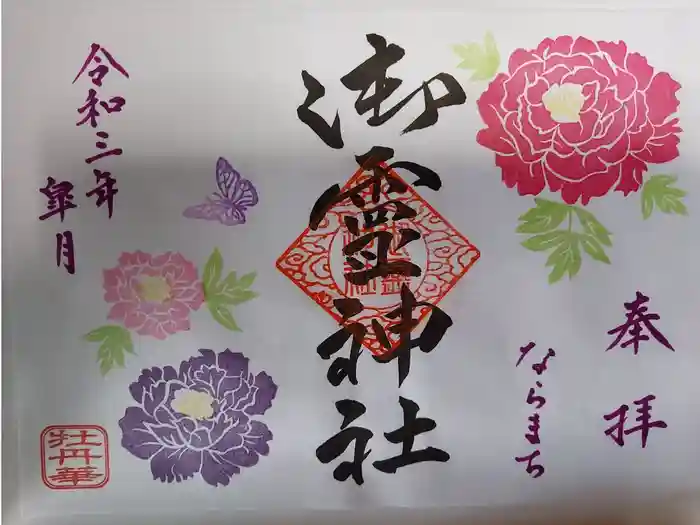 奉拝
ならまち
御霊神社
令和三年
皐月
牡丹華